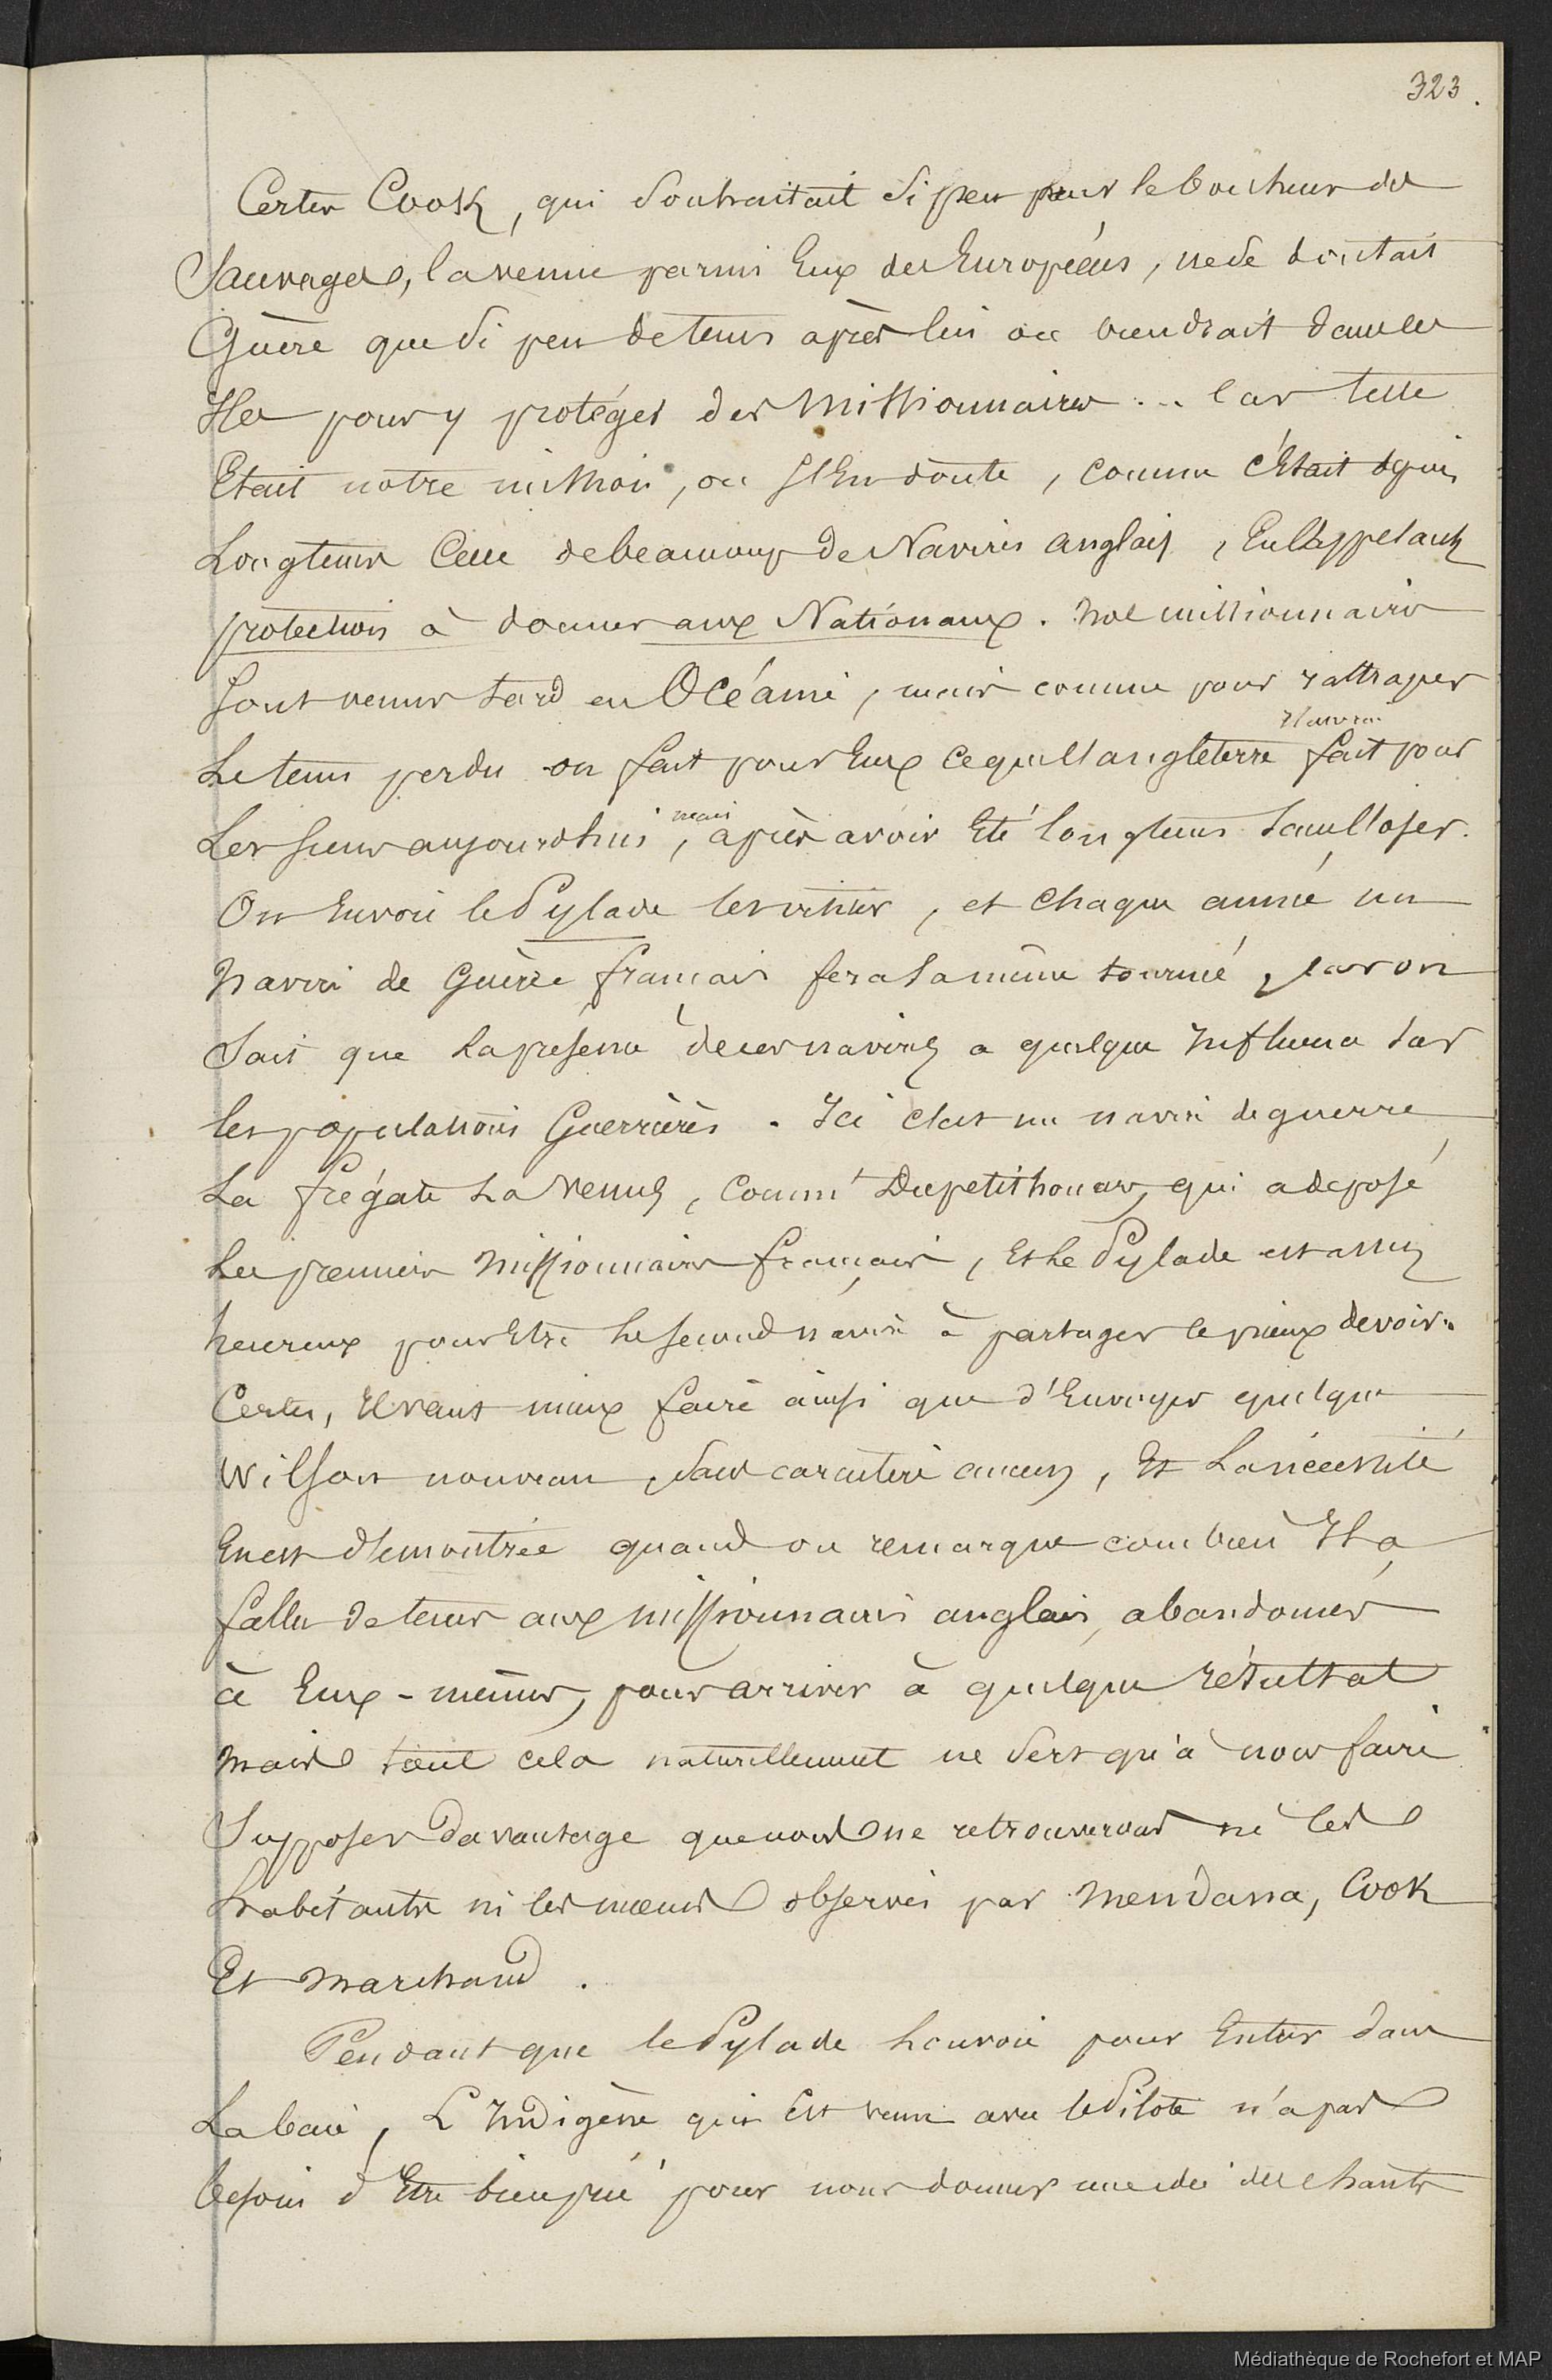 323.
Certes Cook, qui souhaitait si peu pour le bonheur des
Sauvages, la venue parmi Eux des Européens, ne se doutait
Guère que si peu de tems après lui on viendrait dans les
Iles pour y protéger des Missionnaires... Car telle
Etait notre mission, on s'en doute, comme c'Etait depuis
Longtems Celle de beaucoup de Navires anglais, En l'appelant
protection à donner aux Nationaux. Nos missionnaires
Sont venus tard en Océanie, mais comme pour rattraper
Le tems perdu on fait pour Eux ce que l'angleterre fait pour
Les siens aujourd'hui, mais après avoir Eté longtems sans l'oser.
On Envoie le Pylade les visiter, et chaque année un
Navire de Guèrre français fera la même tournée, car on
Sait que la présence de ces navires a quelque Influence sur
les populations Guerrières. Ici c'est un navire de guerre
La frégate La Venus, Comm.t Dupetithouars, qui a deposé
Les premiers Missionnaires français, Et le Pylade est assez
heureux pour Etre le second navire à partager le pieux devoir.
Certes, Il vaut mieux faire ainsi que d'Envoyer quelque
Wilson nouveau, sans caractère aucun, Et La nécessité
En est démontrée quand on remarque combien Il a
fallu de tems aux missionnaires anglais, abandonnés
à Eux-mêmes, pour arriver à quelque résultat
Mais tout cela naturellement ne sert qu'à nous faire
Supposer davantage que nous ne retrouverons ni les
habitants ni les mœurs observés par Mendana, Cook
Et Marchand.
Pendant que le Pylade louvoie pour Entrer dans
La baie, L'Indigène qui Est venu avec le Pilote n'a pas
besoin d'Etre bien prié pour nous donner une idée des chants
Médiathèque de Rochefort et MAP